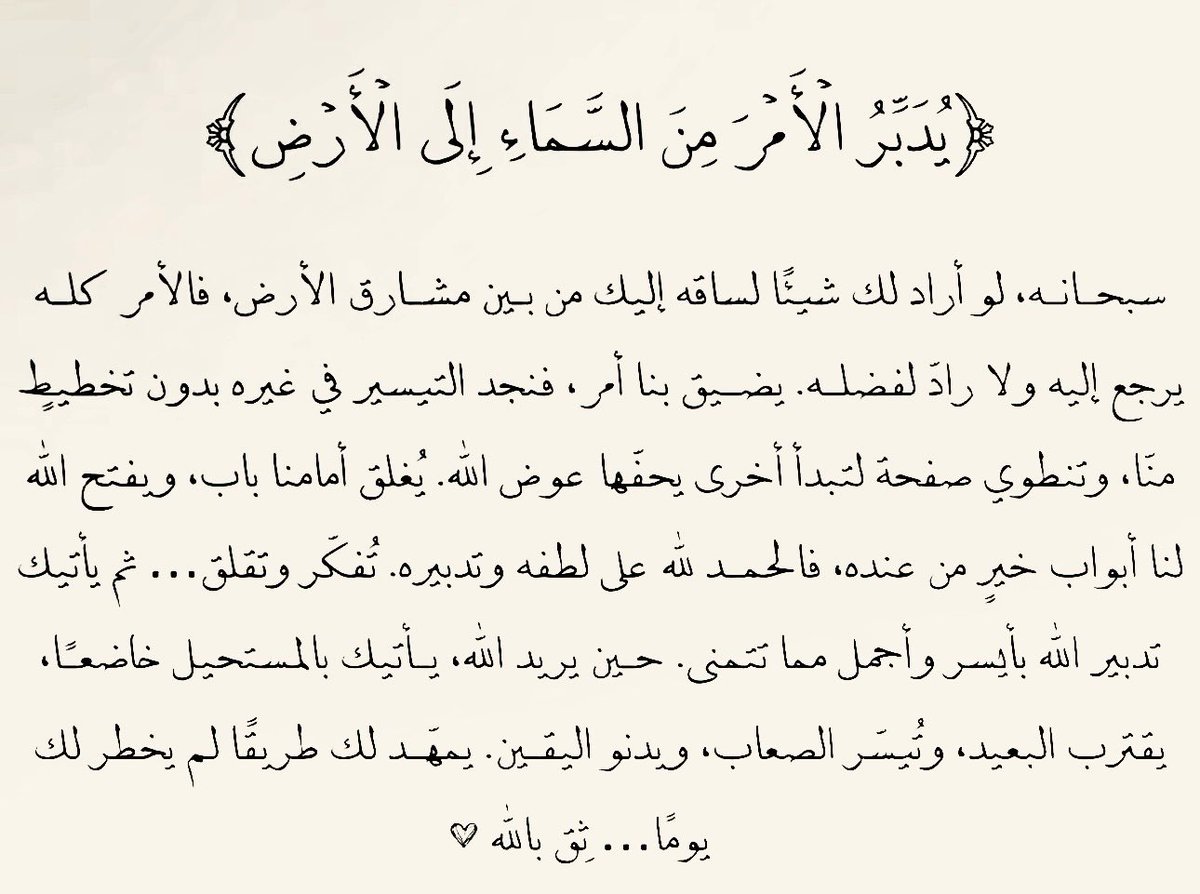 ﴿يُدَبِّرُ الْأَمْرَ مِنَ السَّمَاءِ إِلَى الْأَرْضِ﴾
سبحانه، لو أراد لك شيئًا لساقه إليك من بين مشارق الأرض، فالأمر كله
يرجع إليه ولا رادّ لفضله. يضيق بنا أمر، فنجد التيسير في غيره بدون تخطيطٍ
منّا، وتنطوي صفحة لتبدأ أخرى يحفّها عوض الله. يُغلق أمامنا باب، ويفتح الله
لنا أبواب خيرٍ من عنده، فالحمد لله على لطفه وتدبيره. تُفكّر وتقلق... ثم يأتيك
تدبير الله بأيسر وأجمل مما تتمنى. حين يريد الله، يأتيك بالمستحيل خاضعًا،
يقترب البعيد، وتُيسّر الصعاب، ويدنو اليقين. يمهّد لك طريقًا لم يخطر لك
يومًا... ثِق بالله ♡